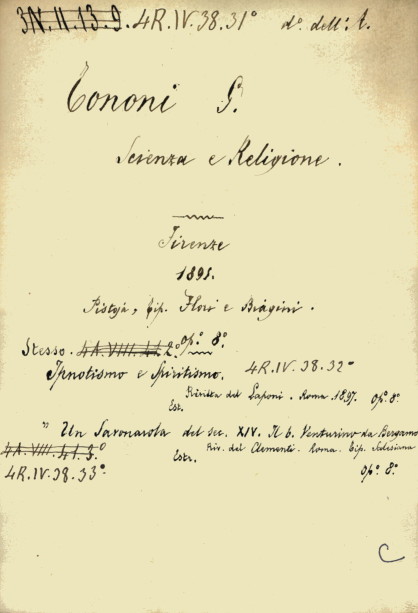 3N.II.13.9. 4R.IV.38.31° d°. dell'A.
Tononi G.
Scienza e Religione.
Firenze
1895.
Pistoja, tip. Flori e Biagini.
op.° 8°
Stesso. 4A.VIII. 2°
Ipnotismo e Spiritismo. 4R.IV.38.32°
Rivista del Laponi. Roma 1897. op.° 8°
Est.
" Un Savonarola del sec. XIV. Il b. Venturino da Bergamo
4A.VIII.41.3° Estr. Riv. del Clementi. Roma. Tip. Salesiana
4R.IV.38.33° op.° 8°
C